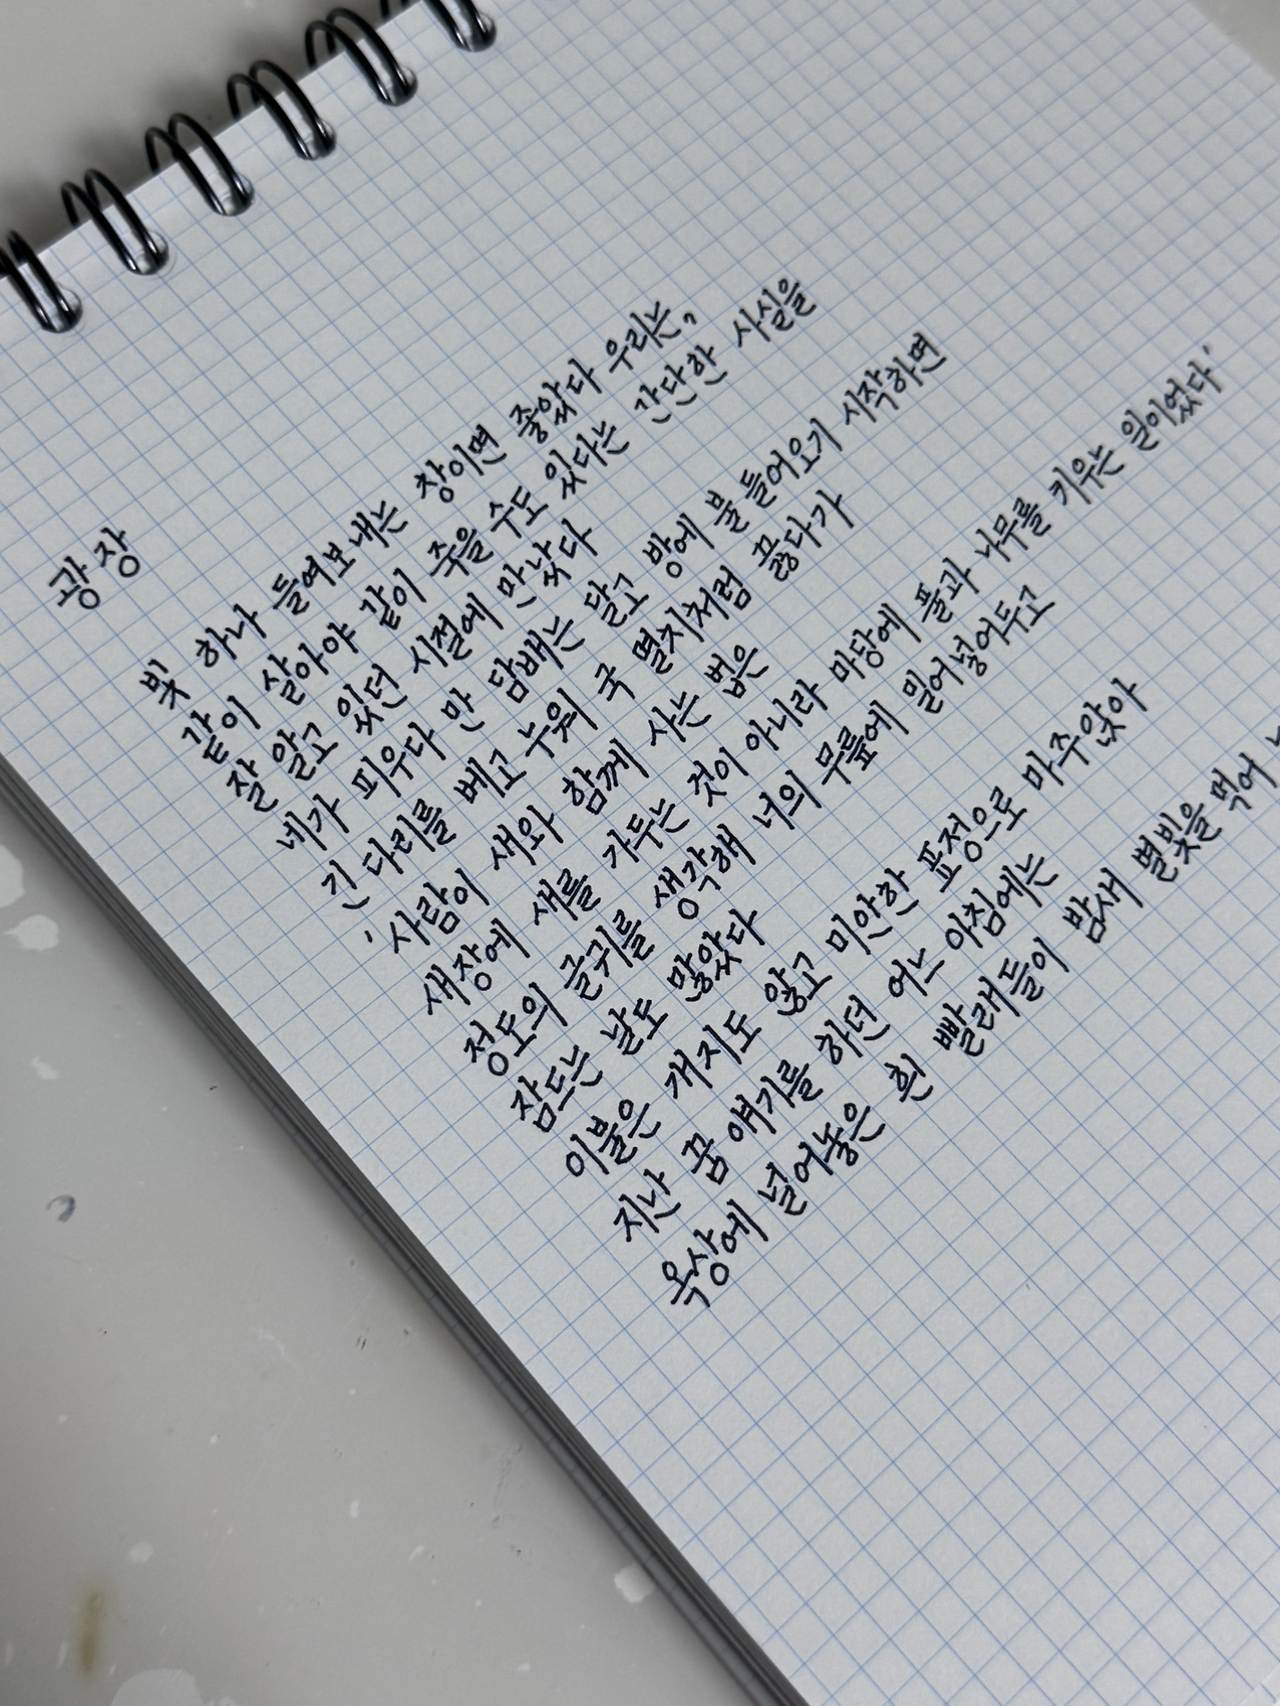 광장
빛 하나 들여보내는 창이면 좋았다 우리는,
같이 살아야 같이 죽을 수도 있다는 간단한 사실을
잘 알고 있던 시절에 만났다
네가 피우다 만 담배는 달고 방에 불 들어오기 시작하면
긴 다리를 베고 누워 국 멸치처럼 끓다가
'사람이 새와 함께 사는 법은
새장에 새를 가두는 것이 아니라 마당에 풀과 나무를 키우는 일이었다'
정도의 글귀를 생각해 너의 무릎에 밀어넣어두고
잠드는 날도 많았다
이불은 개지도 않고 미안한 표정으로 마주앉아
지난 꿈 얘기를 하던 어느 아침에는
옥상에 널어놓은 흰 빨래들이 밤새 별빛을 먹어